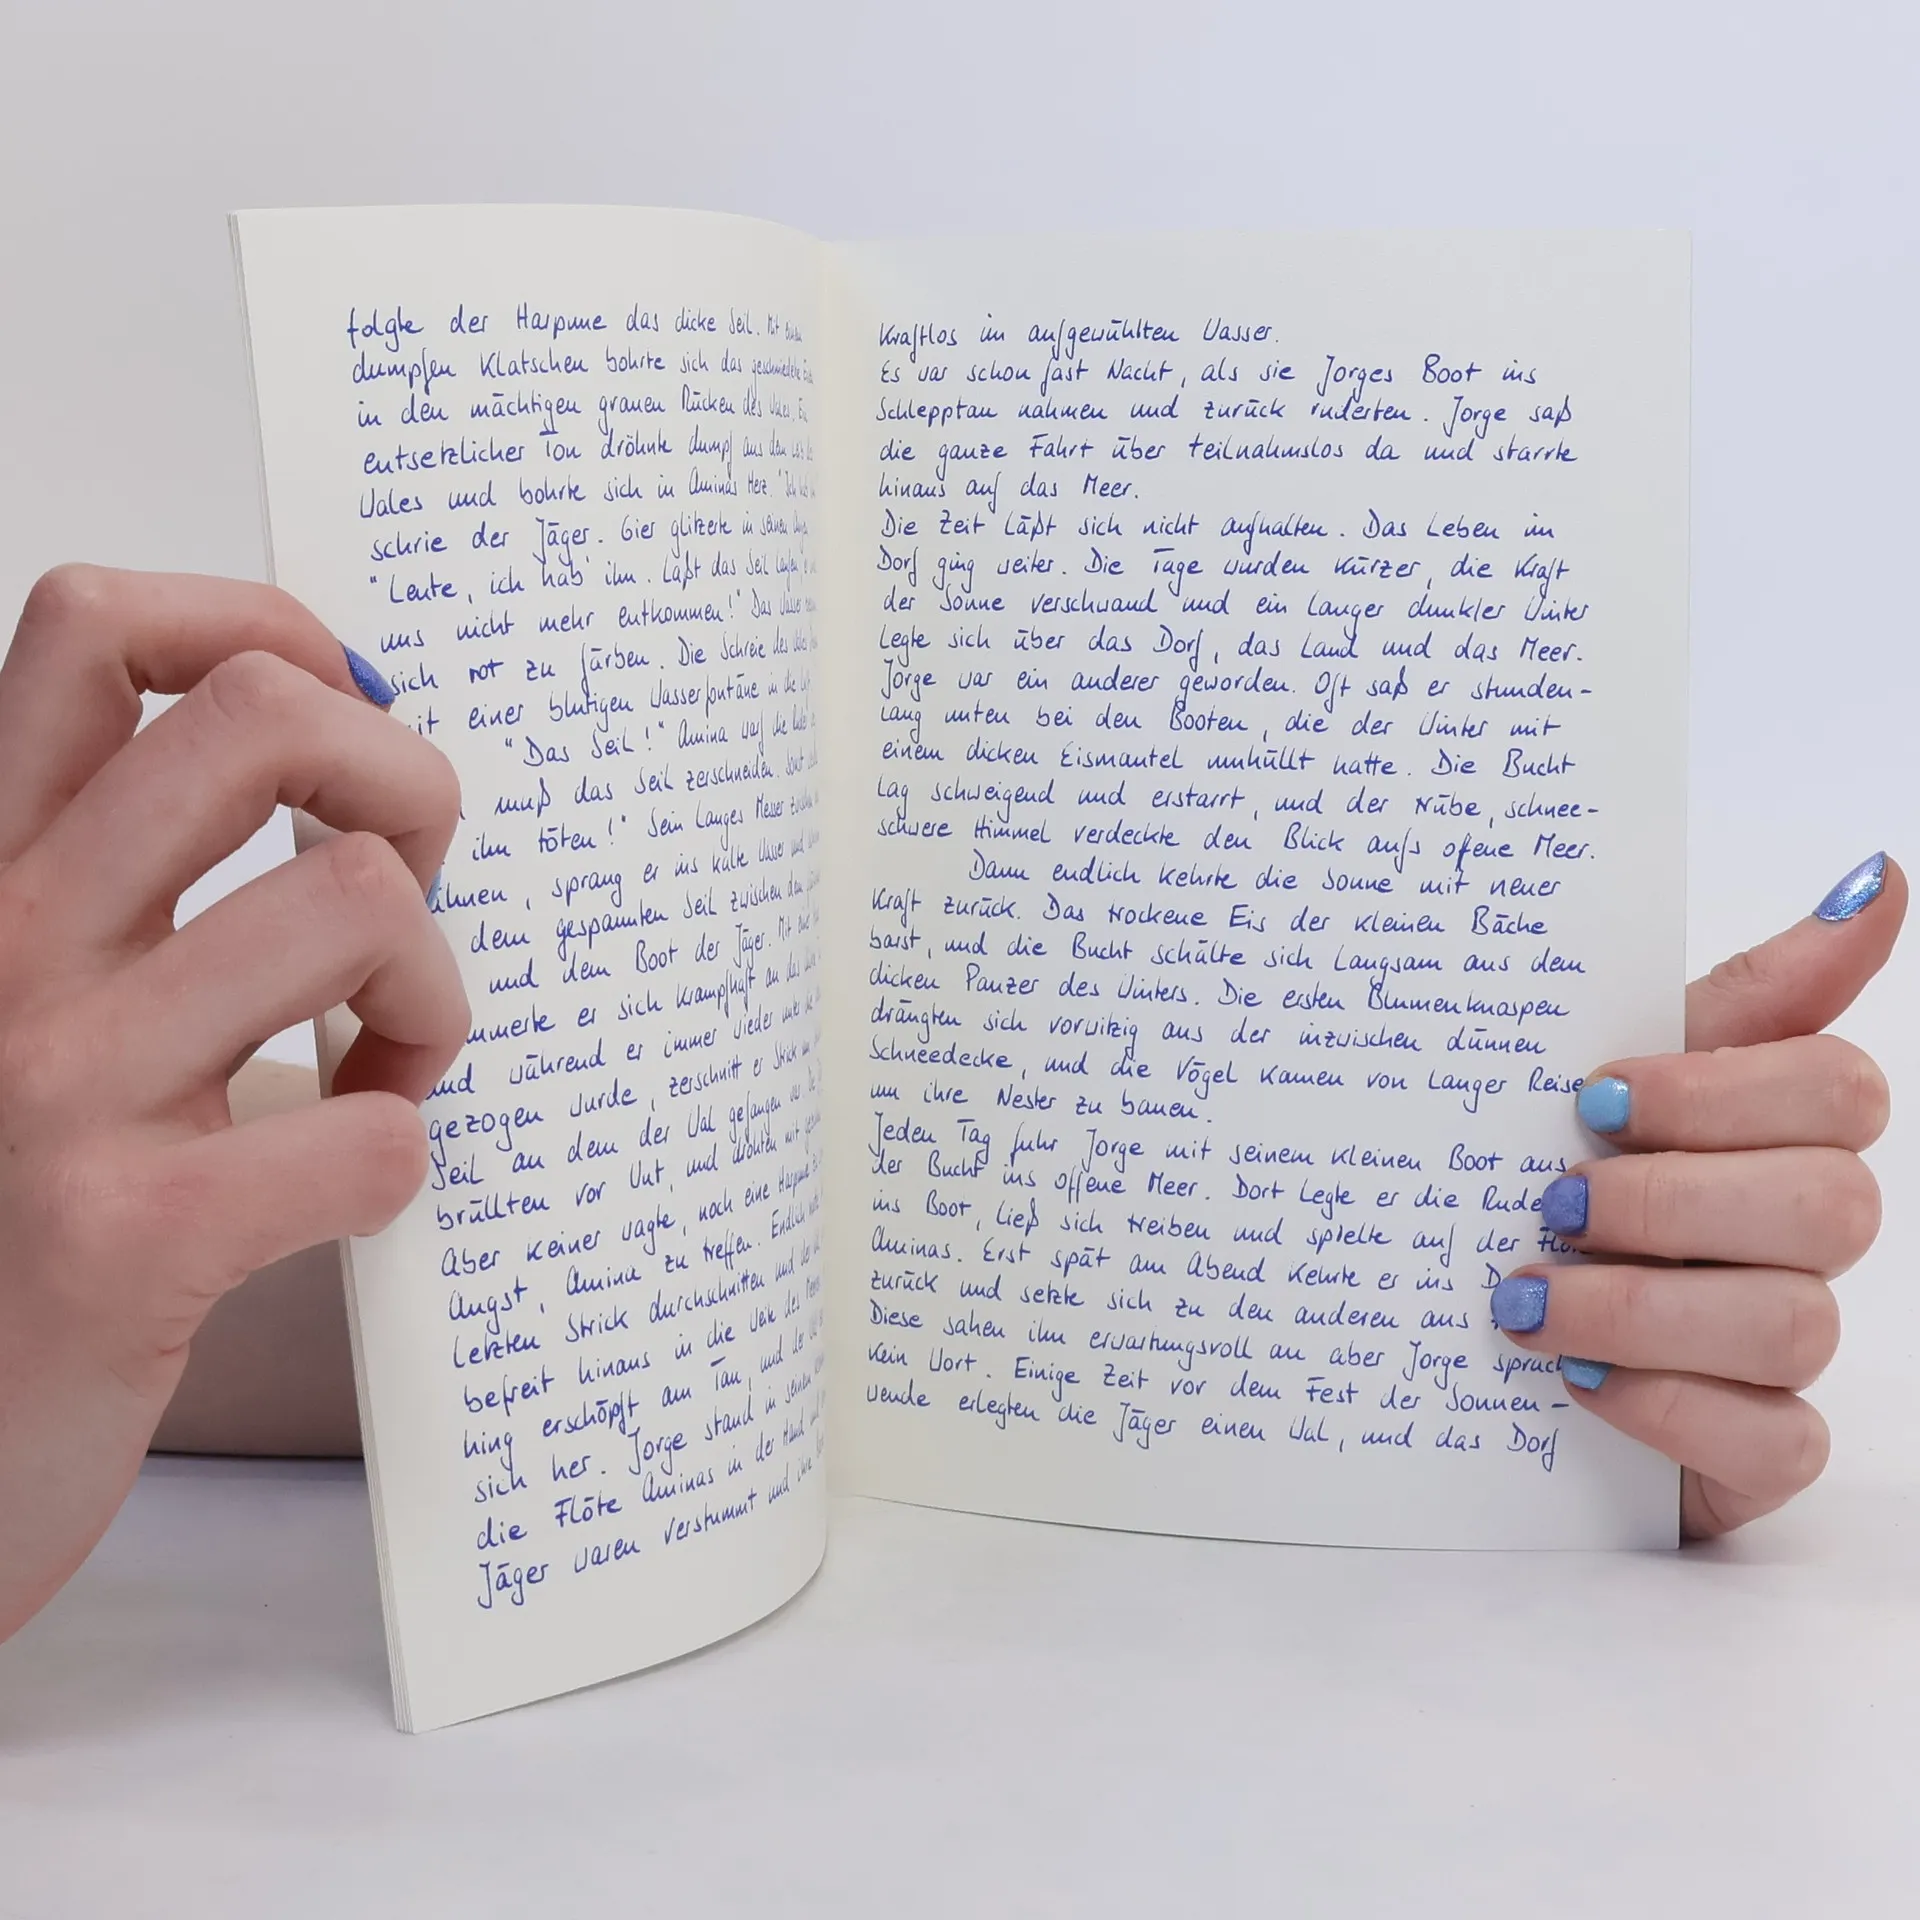 folgte der Harpune das dicke Seil. Mit einem
dumpfen Klatschen bohrte sich das geschmiedete
in den mächtigen grauen Rücken des Wales. Ein
entsetzlicher Ton dröhnte dumpf aus dem
Wales und bohrte sich in Aminas Herz. "Ich hab
schrie der Jäger. Gier glitzerte in seinen
"Leute, ich hab' ihn. Laßt das Seil laufen,
uns nicht mehr entkommen!" Das Wasser
sich rot zu färben. Die Schreie des Wales
it einer blutigen Wasserfontäne in die
"Das Seil!" Amina warf die
muß das Seil zerschneiden. Sonst
ihn töten!" Sein langes Messer zwischen
ähnen, sprang er ins kalte Wasser und
dem gespannten Seil zwischen dem
und dem Boot der Jäger. Mit
mmerte er sich krampfhaft an das
und während er immer wieder unter
gezogen wurde, zerschnitt er Strick um
Seil an dem der Wal gefangen war. Die
brüllten vor Wut, und drohten mit
Aber keiner wagte, noch eine Harpune
Angst, Amina zu treffen. Endlich
letzten Strick durchschnitten und der
befreit hinaus in die Weite des
hing erschöpft am Tau, und der
sich her. Jorge stand in seinem
die Flöte Aminas in der Hand und
Jäger waren verstummt und ihre
Kraftlos im aufgewühlten Wasser.
Es war schon fast Nacht, als sie Jorges Boot ins
Schlepptau nahmen und zurück ruderten. Jorge saß
die ganze Fahrt über teilnahmslos da und starrte
hinaus auf das Meer.
Die Zeit läßt sich nicht aufhalten. Das Leben im
Dorf ging weiter. Die Tage wurden kürzer, die Kraft
der Sonne verschwand und ein langer dunkler Winter
legte sich über das Dorf, das Land und das Meer.
Jorge war ein anderer geworden. Oft saß er stunden-
lang unten bei den Booten, die der Winter mit
einem dicken Eismantel umhüllt hatte. Die Bucht
lag schweigend und erstarrt, und der trübe, schnee-
schwere Himmel verdeckte den Blick aufs offene Meer.
Dann endlich kehrte die Sonne mit neuer
Kraft zurück. Das trockene Eis der kleinen Bäche
barst, und die Bucht schälte sich langsam aus dem
dicken Panzer des Winters. Die ersten Blumenknospen
drängten sich vorwitzig aus der inzwischen dünnen
Schneedecke, und die Vögel kamen von langer Reise
um ihre Nester zu bauen.
Jeden Tag fuhr Jorge mit seinem kleinen Boot aus
der Bucht ins offene Meer. Dort legte er die Rude
ins Boot, ließ sich treiben und spielte auf der
Aminas. Erst spät am Abend kehrte er ins D
zurück und setzte sich zu den anderen ans
Diese sahen ihn erwartungsvoll an aber Jorge sprach
kein Wort. Einige Zeit vor dem Fest der Sonnen-
wende erlegten die Jäger einen Wal, und das Dorf